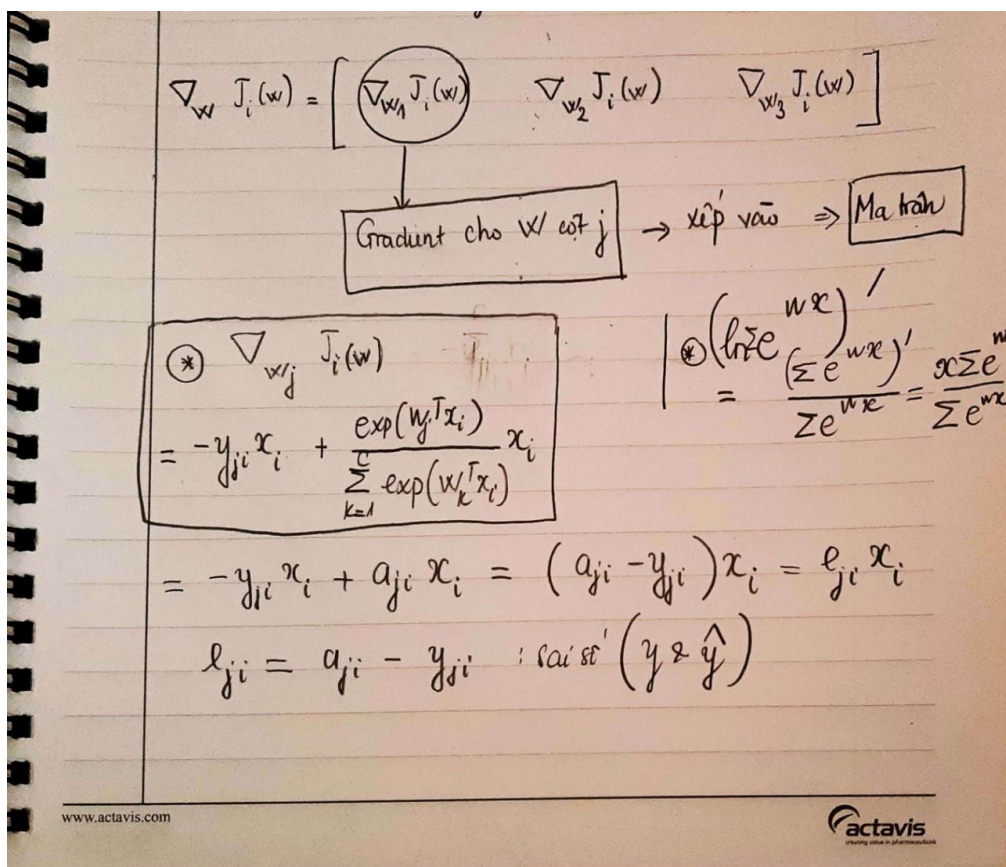 ∇_W J_i(w) = [ ∇_{W1} J_i(w) ∇_{W2} J_i(w) ∇_{W3} J_i(w) ]
Gradient cho W cột j → xếp vào ⇒ Ma trận
⊛ ∇_{Wj} J_i(w)
= -y_{ji} x_i + exp(W_j^T x_i) / Σ_{k=1}^{C} exp(W_k^T x_i) x_i
⊛ (lnΣe^{wx})'
= (Σe^{wx})' / Σe^{wx} = xΣe^{w / Σe^{wx}
= -y_{ji} x_i + a_{ji} x_i = (a_{ji} - y_{ji}) x_i = e_{ji} x_i
e_{ji} = a_{ji} - y_{ji} : sai số (y & ŷ)
www.actavis.com
actavis
creating value in pharmaceuticals